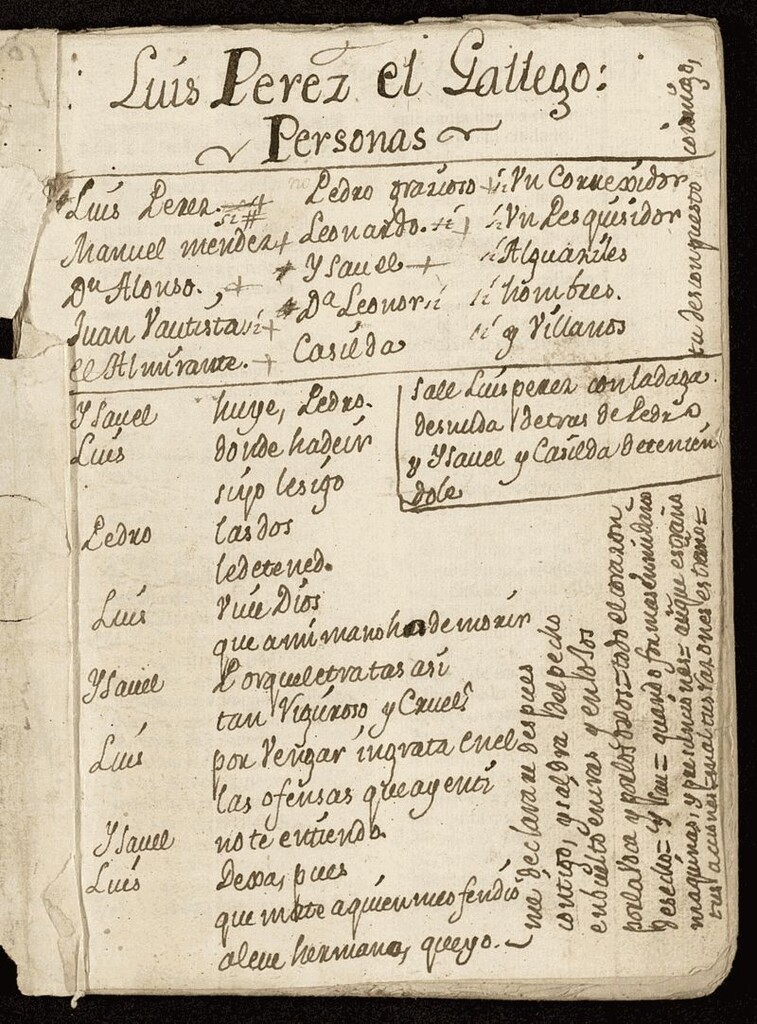 Luis Perez el Gallego:
Personas
Luis Perez.
Manuel mendez
Dn Alonso.
Juan Vautista
el Almirante.
Pedro grazioso
Leonardo.
Ysavel
Da Leonor
Casilda
Vn Correxidor
Vn Pesquisidor
Alguaziles
hombres.
y Villanos
Sale Luis perez con la daga
desnuda detras de Pedro
y Ysavel y Casilda detenien
dole
Ysavel huye, Pedro.
Luis donde ha de ir
si yo le sigo
Pedro las dos
le detened.
Luis Vive Dios
que a mi mano ha de morir
Ysavel Porque le tratas asi
tan Riguroso y Cruel?
Luis por Vengar ingrata en el
las ofensas que ay en ti
Ysavel no te entiendo.
Luis Dexa, pues
que mate a quien me ofendio
aleve hermana, que yo.
me declarare despues
contigo, y saldra del pecho
enbuelto en iras y enojos
por la voca y por los ojos = todo el corazon
desecho =
maquinas, y presunciones = aunque estraño
tus acciones = mal tus razones estraño =
tu desconpuesto
conmigo,